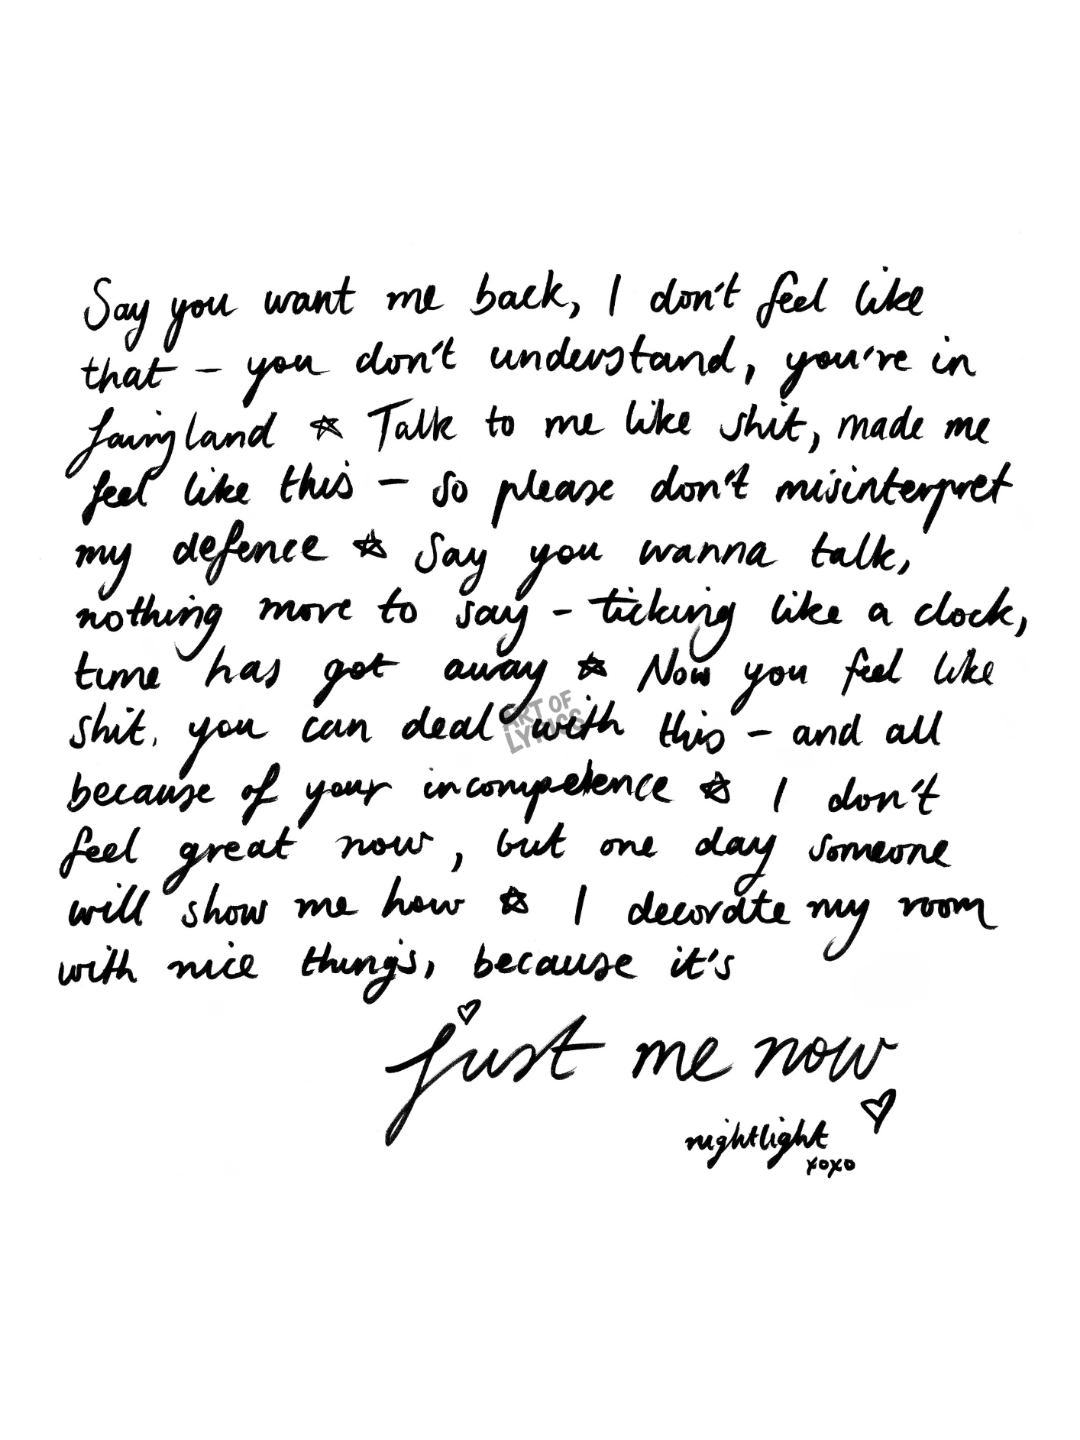 Say you want me back, I don't feel like
that – you don't understand, you're in
fairyland ☆ Talk to me like shit, made me
feel like this – so please don't misinterpret
my defence ☆ Say you wanna talk,
nothing more to say – ticking like a clock,
time has got away ☆ Now you feel like
shit, you can deal with this – and all
because of your incompetence ☆ I don't
feel great now, but one day someone
will show me how ☆ I decorate my room
with nice things, because it's
just me now
nightlight
xoxo
ART OF
LYRICS